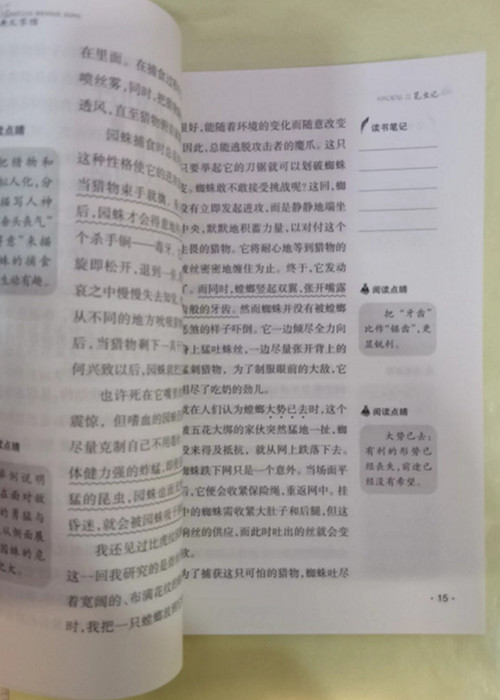 在里面。在捕食过
喷丝雾,同时,把
透风,直至猎物
园蛛捕食时总
这种性格使它的
当猎物束手就擒,
后,园蛛才会得意
个杀手锏——毒牙。
旋即松开,退到一
哀之中慢慢失去知觉
从不同的地方吮吸
后,当猎物剩下一具干
何兴致以后,园蛛就把
也许死在它嘴里的
震惊。但嗜血的园蛛
尽量克制自己不用毒
体健力强的蚱蜢,即使
猛的昆虫,园蛛也
昏迷,就会被园蛛吸
我还见过比虎纹
这一回我研究的是
着宽阔的、布满花纹的
时,我把一只螳螂放
读点睛
把猎物和
拟人化,分
描写人神
垂头丧气”
得意”来描
蛛的捕食
生动有趣。
读点睛
举例说明
在面对敌
的勇猛与
从侧面展
园蛛的危
之大。
昆虫记
很好,能随着环境的变化而随意改变
因此,总能逃脱攻击者的魔爪。这只
只要举起它的刀锯就可以划破蜘蛛
支。蜘蛛敢不敢接受挑战呢?这回,蜘
没有立即发起进攻,而是静静地端坐
中央,默默地积蓄力量,以对付这个
生畏的猎物。它将耐心地等到猎物的
被丝密密地缠住为止。终于,它发动
了。而同时,螳螂竖起双翼,张开嘴露
齿般的牙齿。然而蜘蛛并没有被螳螂
恶煞的样子吓倒。它一边倾尽全力向
身上猛吐蛛丝,一边尽量张开背上的
猛刺猎物。为了制服眼前的大敌,它
用尽了吃奶的劲儿。
就在人们认为螳螂大势已去时,这个
被五花大绑的家伙突然猛地一扯,蜘
没来得及抵抗,就从网上跌落下去。
蜘蛛跌下网只是一个意外。当场面平
后,它便会收紧保险绳,重返网中。挂
中的蜘蛛需收紧大肚子和后腿,但这
响丝的供应,而此时吐出的丝就会变
攻。
为了捕获这只可怕的猎物,蜘蛛吐尽
读书笔记
阅读点睛
把“牙齿”
比作“锯齿”,更
显锐利。
阅读点睛
大势已去:
有利的形势已
经丧失,前途已
经没有希望。
·15·